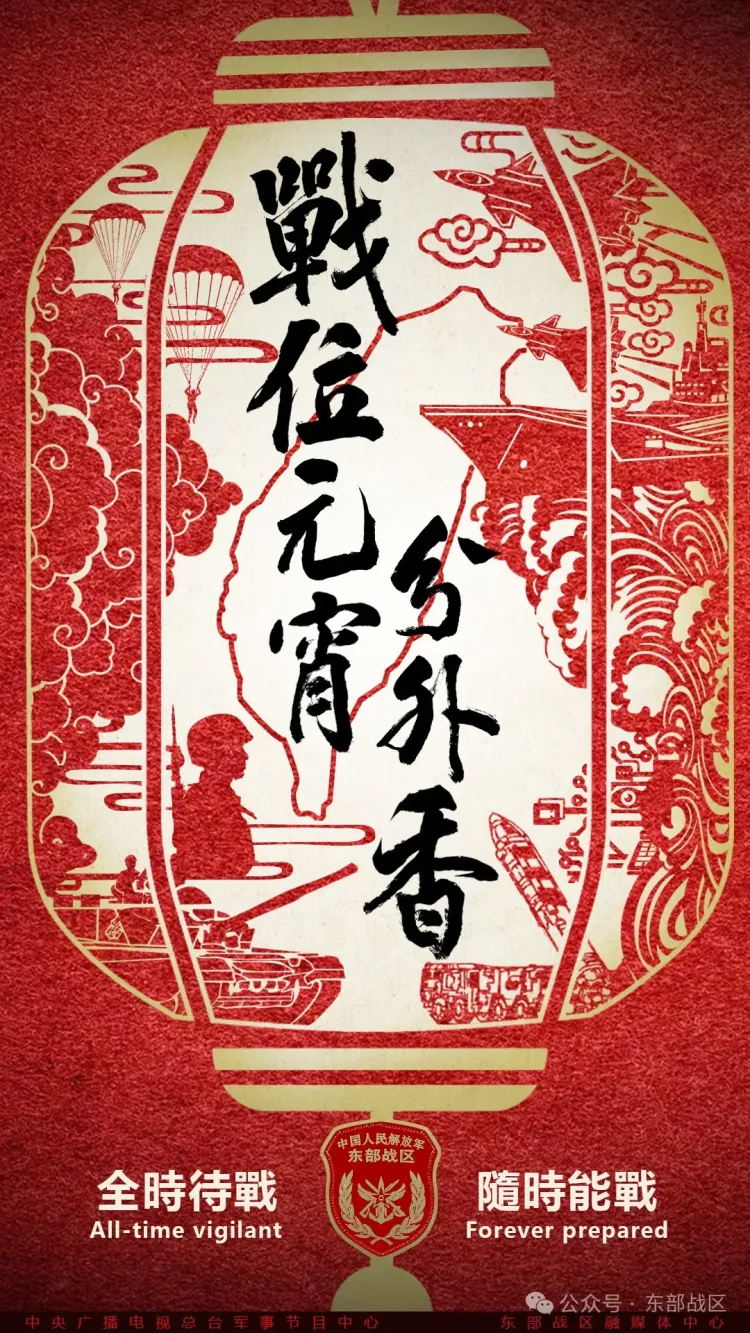 戰位元宵
分外香
中国人民解放军
东部战区
全時待戰
All-time vigilant
隨時能戰
Forever prepared
公众号·东部战区
中央广播电视总台军事节目中心
东部战区融媒体中心